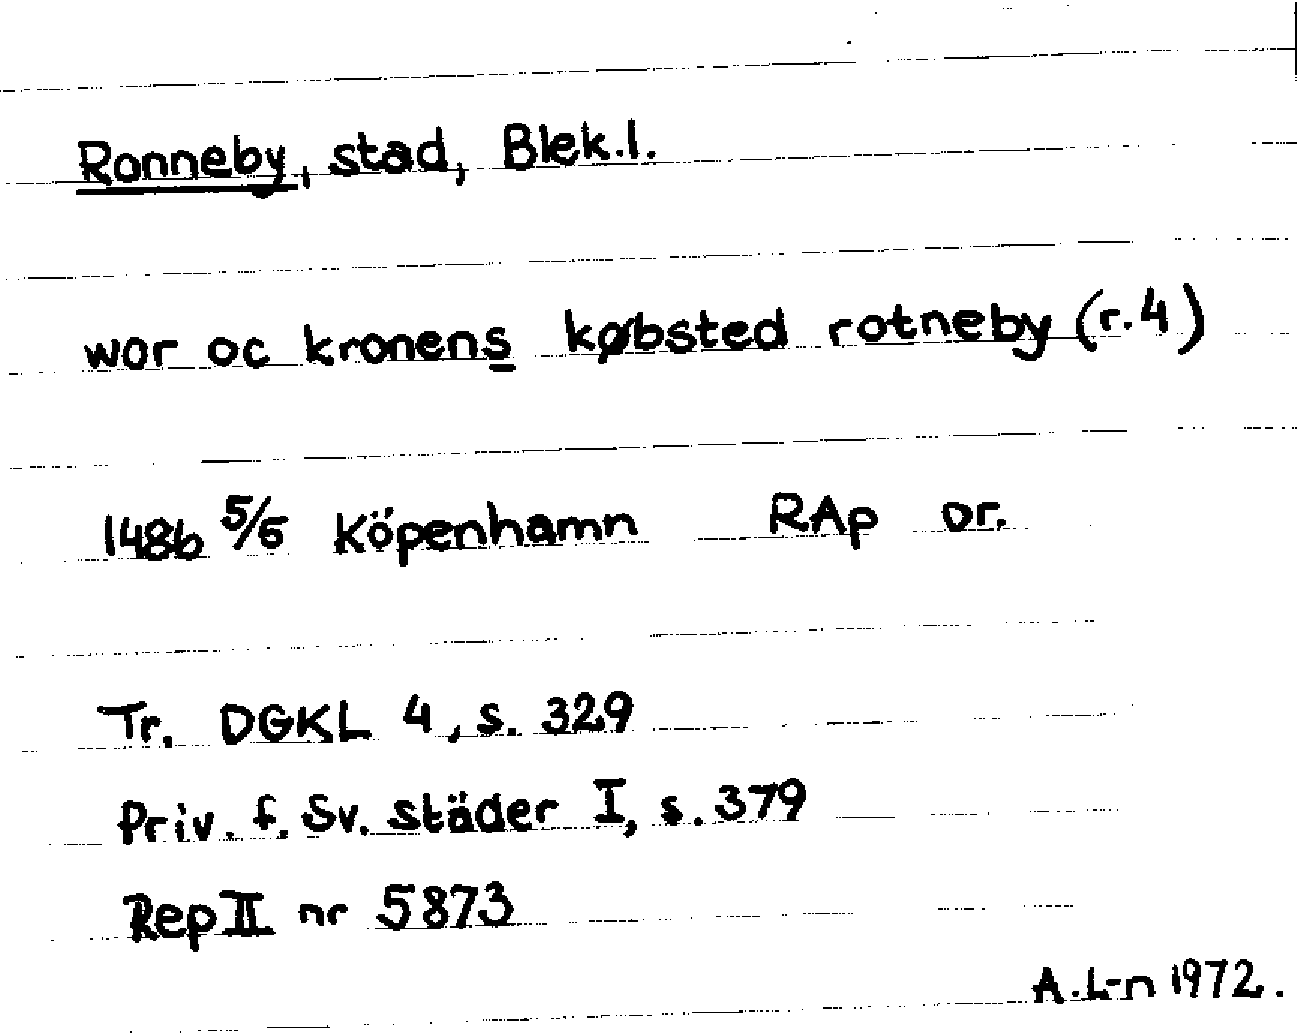 Ronneby, stad, Blek.l.
wor oc kronens købsted rotneby (r.4)
1486 5/6 Köpenhamn RAp or.
Tr. DGKL 4, s. 329
Priv. f. Sv. städer I, s. 379
Rep II nr 5873
A.L-n 1972.